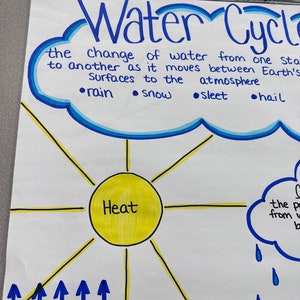 Water Cycl
the change of water from one sta
to another as it moves between Earth's
surfaces to the atmosphere
•rain •snow •sleet •hail
Heat
the p
from w
b